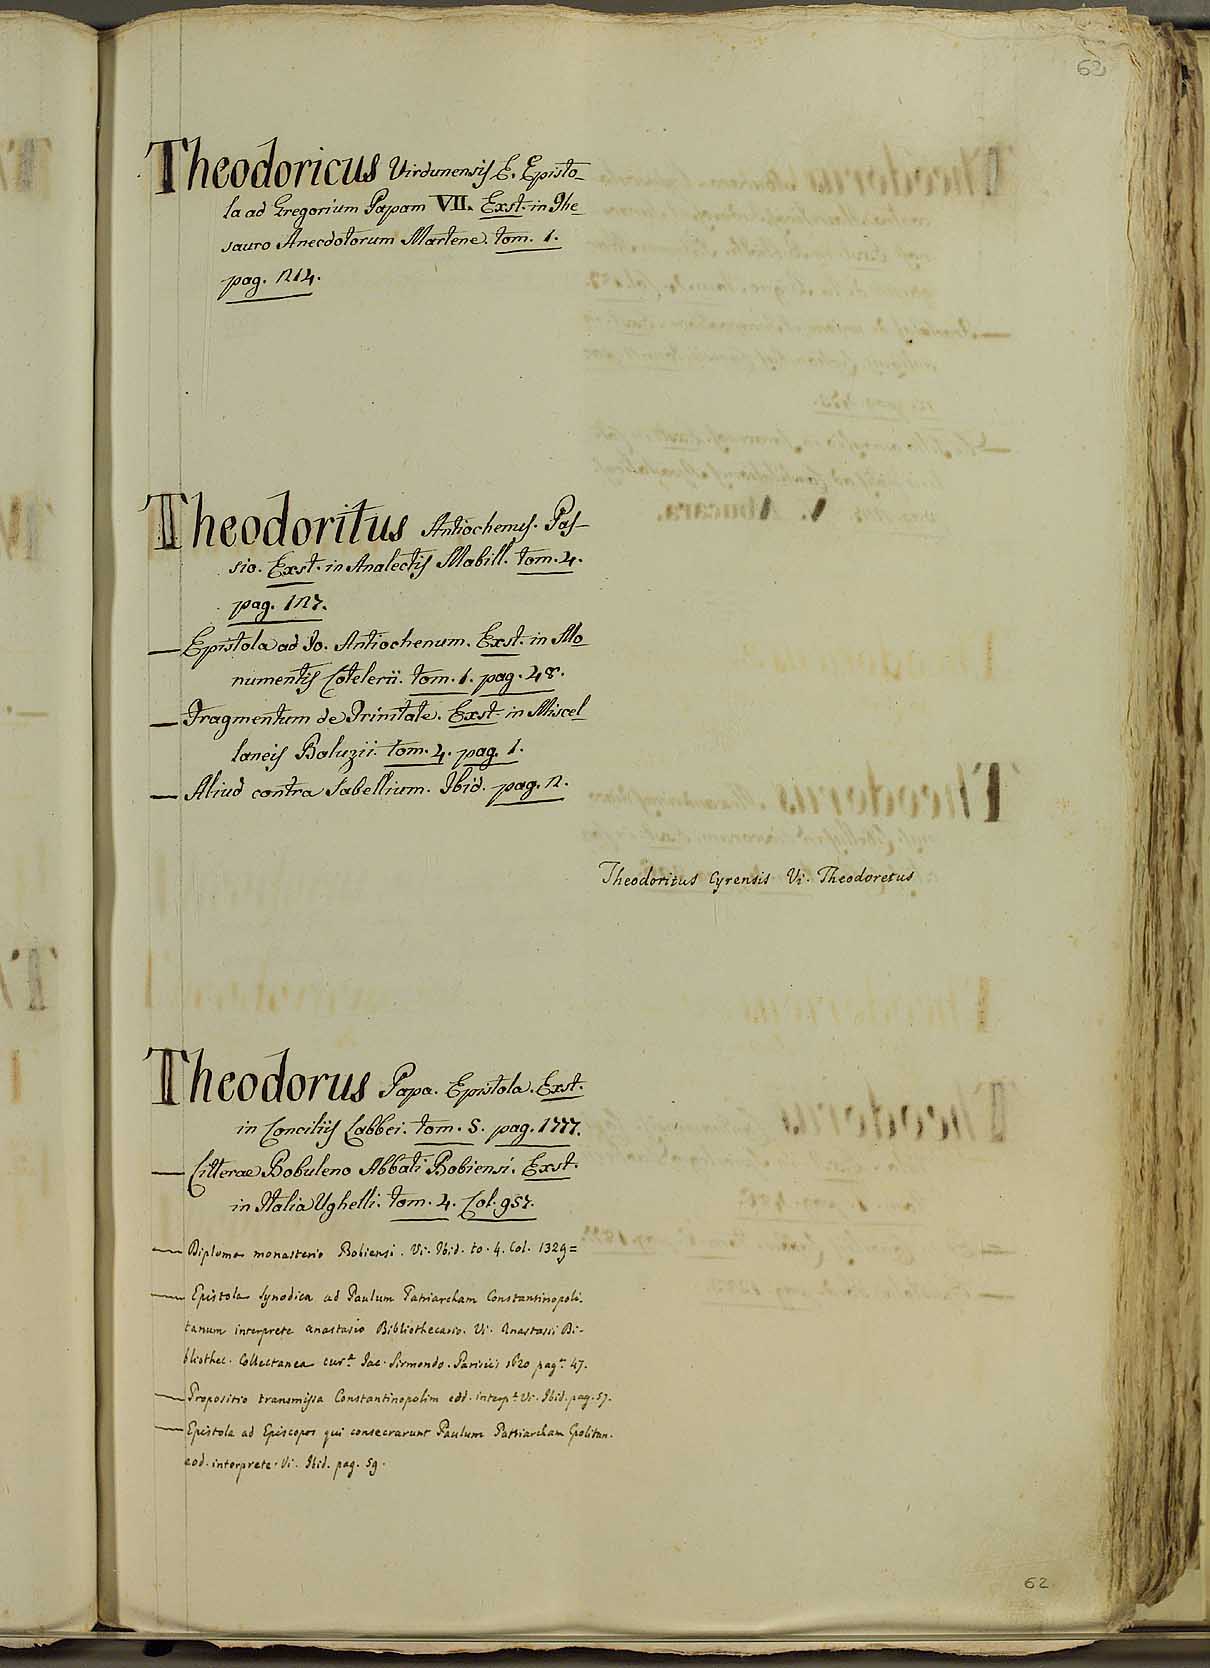 63
Theodoricus Virdunensis E. Episto_
la ad Gregorium Papam VII. Exst. in The_
sauro Anecdotorum Martene. tom. 1.
pag. 214.
Theodoritus Antiochenus. Pas_
sio. Exst. in Analectis Mabill. tom. 4.
pag. 127.
— Epistola ad Io. Antiochenum. Exst. in Mo_
numentis Cotelerii. tom. 1. pag. 48.
— Fragmentum de Trinitate. Exst. in Miscel_
laneis Baluzii. tom. 4. pag. 1.
— Aliud contra Sabellium. Ibid. pag. 2.
Theodoritus Cyrensis Vi. Theodoretus
Theodorus Papa. Epistola. Exst.
in Conciliis Labbei. tom. 5. pag. 1777.
— Litterae Bobuleno Abbati Bobiensi. Exst.
in Italia Ughelli. tom. 4. Col. 957.
— Diploma monasterio Bobiensi. Vi. Ibid. to. 4. Col. 1329=
— Epistola Synodica ad Paulum Patriarcham Constantinopoli-
tanum interprete anastasio Bibliothecario. Vi. Anastasii Bi-
bliothec. Collectanea cur.ª Iac. Sirmondo. Parisiis 1620 pag. 47.
— Propositio transmissa Constantinopolim eod. interp.e Vi. Ibid. pag. 57.
— Epistola ad Episcopos qui consecrarunt Paulum Patriarcham Cpolitan.
eod. interprete. Vi. Ibid. pag. 59.
62